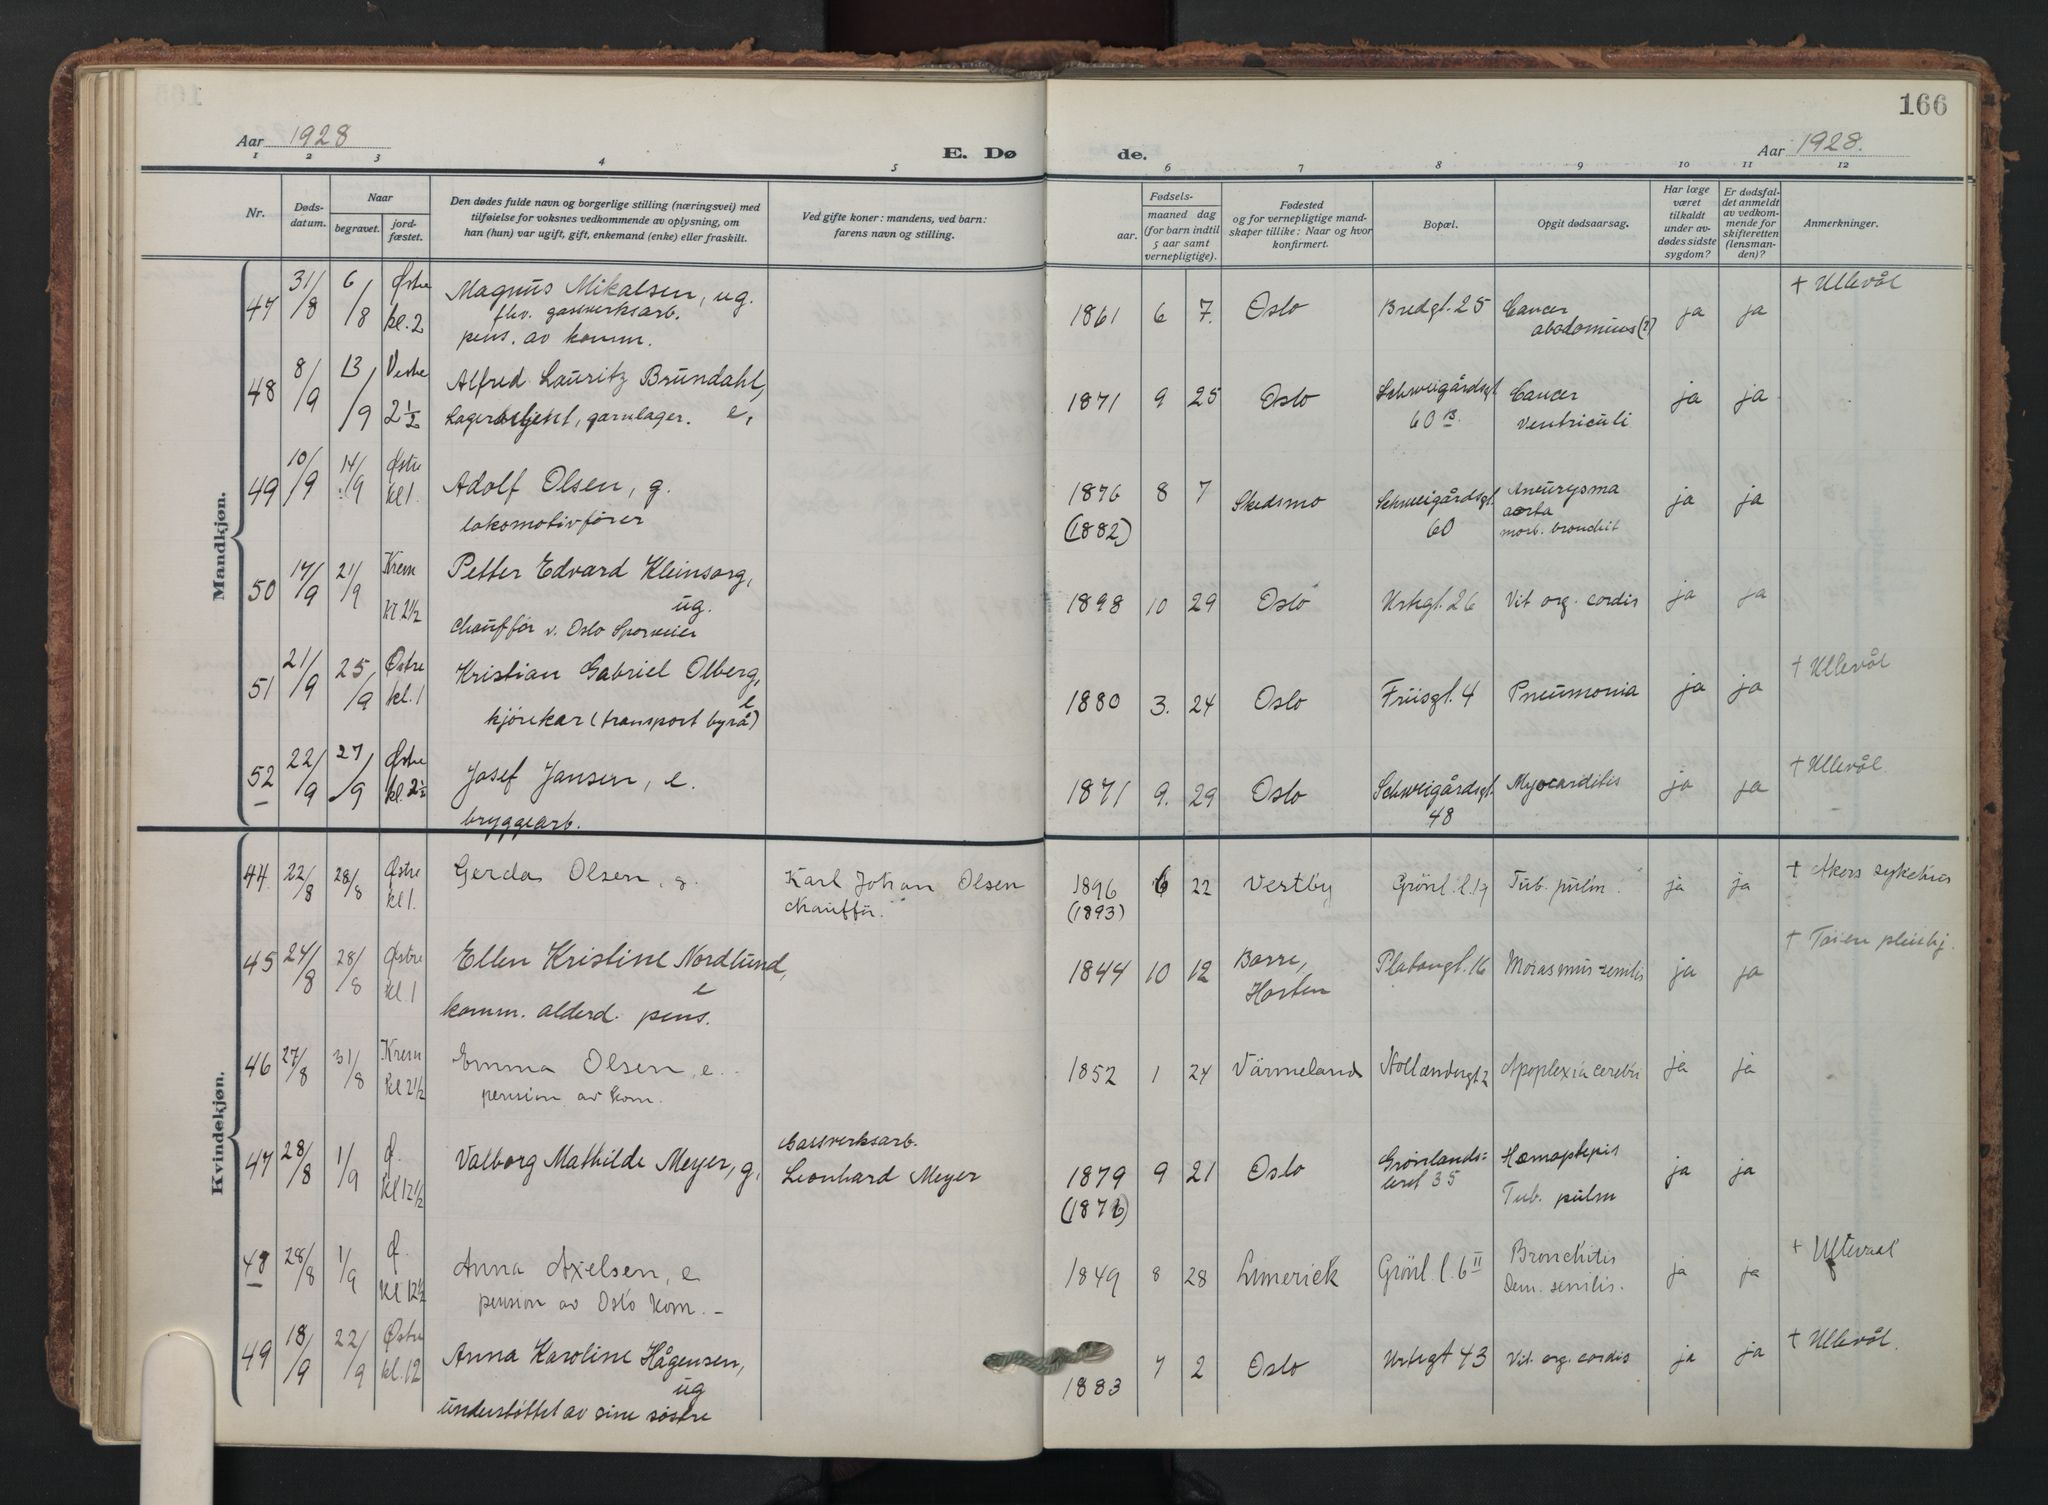 166
Aar 1928
E. Dø
de.
Aar 1928.
1 2 3 4 5 6 7 8 9 10 11 12
Nr.
Døds-
datum.
Naar
begravet.
jord-
fæstet.
Den dødes fulde navn og borgerlige stilling (næringsvei) med
tilføielse for voksnes vedkommende av oplysning, om
han (hun) var ugift, gift, enkemand (enke) eller fraskilt.
Ved gifte koner: mandens, ved barn:
farens navn og stilling.
Fødsels-
aar.
maaned dag
(for barn indtil
5 aar samt
vernepligtige).
Fødested
og for vernepligtige mand-
skaper tillike: Naar og hvor
konfirmert.
Bopæl.
Opgit dødsaarsag.
Har læge
været
tilkaldt
under av-
dødes sidste
sygdom?
Er dødsfal-
det anmeldt
av vedkom-
mende for
skifteretten
(lensman-
den)?
Anmerkninger.
Mandkjøn.
47 31/8 6/8 Østre kl. 2
Magnus Mikalsen, ug.
fhv. gassverksarb.
pens. av komm.
1861 6 7. Oslo Bredgt. 25 Cancer
abdominus (?) ja ja + Ullevål
48 8/9 13/9 Vestre 2 1/2
Alfred Lauritz Brundahl,
Lagerbetjent, garnlager. e,
1871 9 25 Oslo Schweigårdsgt.
60 B. Cancer
Ventriculi ja ja
49 10/9 14/9 Østre kl 1.
Adolf Olsen, g.
lokomotivfører
1876 8 7 Skedsmo Schweigårdsgt.
(1882) 60 Aneurysma
aorta
morb. bronchit ja ja
50 17/9 21/9 Krem Kl 2 1/2
Petter Edvard Kleinsorg,
ug.
Chauffør v. Oslo Sporveier
1898 10 29 Oslo Urtegt. 26 Vit. org. cordis ja ja
51 21/9 25/9 Østre kl. 1
Kristian Gabriel Olberg,
e
kjørekar (transport byrå)
1880 3. 24 Oslo Friisgt. 4 Pneumonia ja ja + Ullevål
52 22/9 27/9 Østre kl. 2 1/2
Josef Jansen, e.
bryggearb.
1871 9. 29 Oslo Schweigårdsgt.
48 Myocarditis ja ja + Ullevål
Kvindekjøn.
44 22/8 28/8 Østre kl 1.
Gerda Olsen, g.
Karl Johan Olsen
chauffør.
1896 6 22 Vestby Grönl. l. 19 Tub. pulm. ja ja + Akers sykehus
(1893)
45 24/8 28/8 Østre kl. 1
Ellen Kristine Nordlund,
e
komm. alderd. pens.
1844 10 12 Borre,
Horten Platougt. 16 Marasmus senilis ja ja + Tøien pleiehj.
46 27/8 31/8 Krem Kl 2 1/2
Emma Olsen, e.
pension av kom.
1852 1 24 Värmeland Hollendergt 2 Apoplexia cerebri ja ja
47 28/8 1/9 Ø. Kl 12 1/2
Valborg Mathilde Meyer, g,
Gassverksarb.
Leonhard Meyer
1879 9 21 Oslo Grønlands=
leret 35
(1876) Hæmoptysis
Tub. pulm ja ja
48 28/8 1/9 Ø. Kl 12 1/2
Anna Axelsen, e
pension av Oslo kom. –
1849 8 28 Limerick Grönl. l. 6 II Bronchitis
Dem. senilis. ja ja + Ullevaal
49 18/9 22/9 Østre kl. 12
Anna Karoline Hågensen,
ug
understøttet av sine søstre
1883 7 2 Oslo Urtegt 43 Vit. org. cordis ja ja + Ullevål.